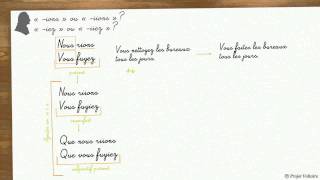 « -ions » ou « -iions » ?
« -iez » ou « -iiez » ?
Nous rions
Vous fuyez
présent
Vous nettoyez les bureaux
tous les jours.
Vous faites les bureaux
tous les jours.
Nous riions
Vous fuyiez
imparfait
Que nous riions
Que vous fuyiez
subjonctif présent
Projet Voltaire